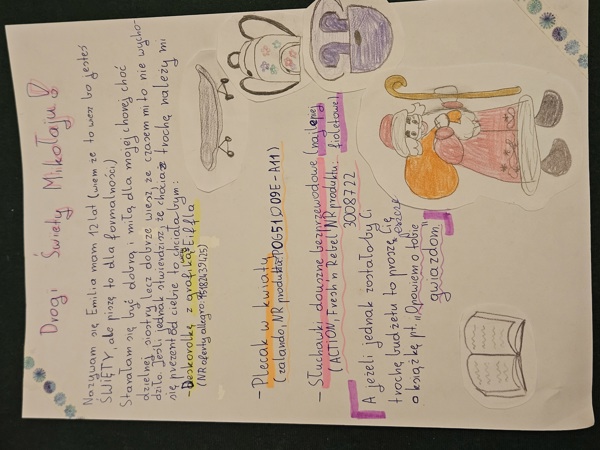 Drogi Święty Mikołaju!
Nazywam się Emilia mam 12 lat (wiem że to wesz bo jesteś
ŚWIĘTY, ale piszę to dla formalności)
Starałam się być dobrą i miłą dla mojej chorej choć
dzielnej siostry lecz dobrze wiesz, że czasem mi to nie wycho-
dziło. Jeśli jednak stwierdzisz, że chociaż trochę należy mi
się prezent od ciebie to chciałabym:
- Deskorolkę z grafiką Eiffla
(NR oferty allegro: 15182439425)
- Plecak w kwiaty
(zalando, NR produktu: POG51O09E-A11)
- Słuchawki douszne bezprzewodowe (najlepiej
(ACTION, Fresh'n Rebel NR produktu: fioletowe)
3008722
A jeżeli jednak zostałoby Ci
trochę budżetu to proszę Cię jeszcze
o książkę pt. „Opowiem o tobie
gwiazdom"